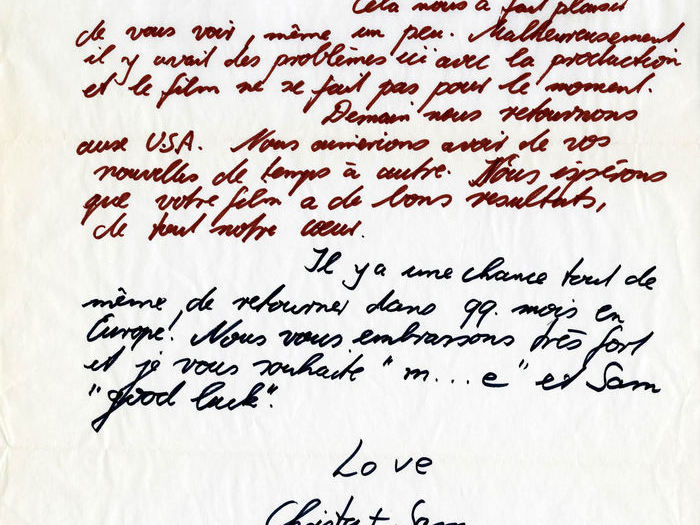 Cela nous a fait plaisir
de vous voir, même un peu. Malheureusement
il y avait des problèmes ici avec la production
et le film ne se fait pas pour le moment.
Demain nous retournons
aux U.S.A. Nous aimerions avoir de vos
nouvelles de temps à autre. Nous espérons
que votre film a de bons resultats,
de tout notre cœur.
Il y a une chance tout de
même, de retourner dans 99. mois en
Europe! Nous vous embrassons très fort
et je vous souhaite "m...e" et Sam
"good luck".
Love
Christa + Sam